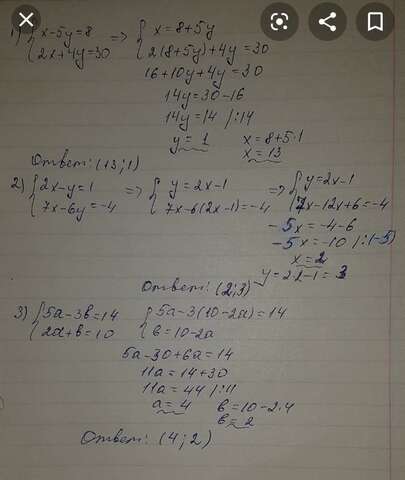 1) {x-5y=8 => {x=8+5y
{2x+4y=30 {2(8+5y)+4y=30
16+10y+4y=30
14y=30-16
14y=14 /:14
y=1 x=8+5·1
x=13
Ответ: (13;1)
2) {2x-y=1 => {y=2x-1 => {y=2x-1
{7x-6y=-4 {7x-6(2x-1)=-4 {7x-12x+6=-4
-5x=-4-6
-5x=-10 /:(-5)
x=2
y=2·2-1=3
Ответ: (2;3)
3) {5a-3b=14 {5a-3(10-2a)=14
{2a+b=10 {b=10-2a
5a-30+6a=14
11a=14+30
11a=44 /:11
a=4 b=10-2·4
b=2
Ответ: (4;2)